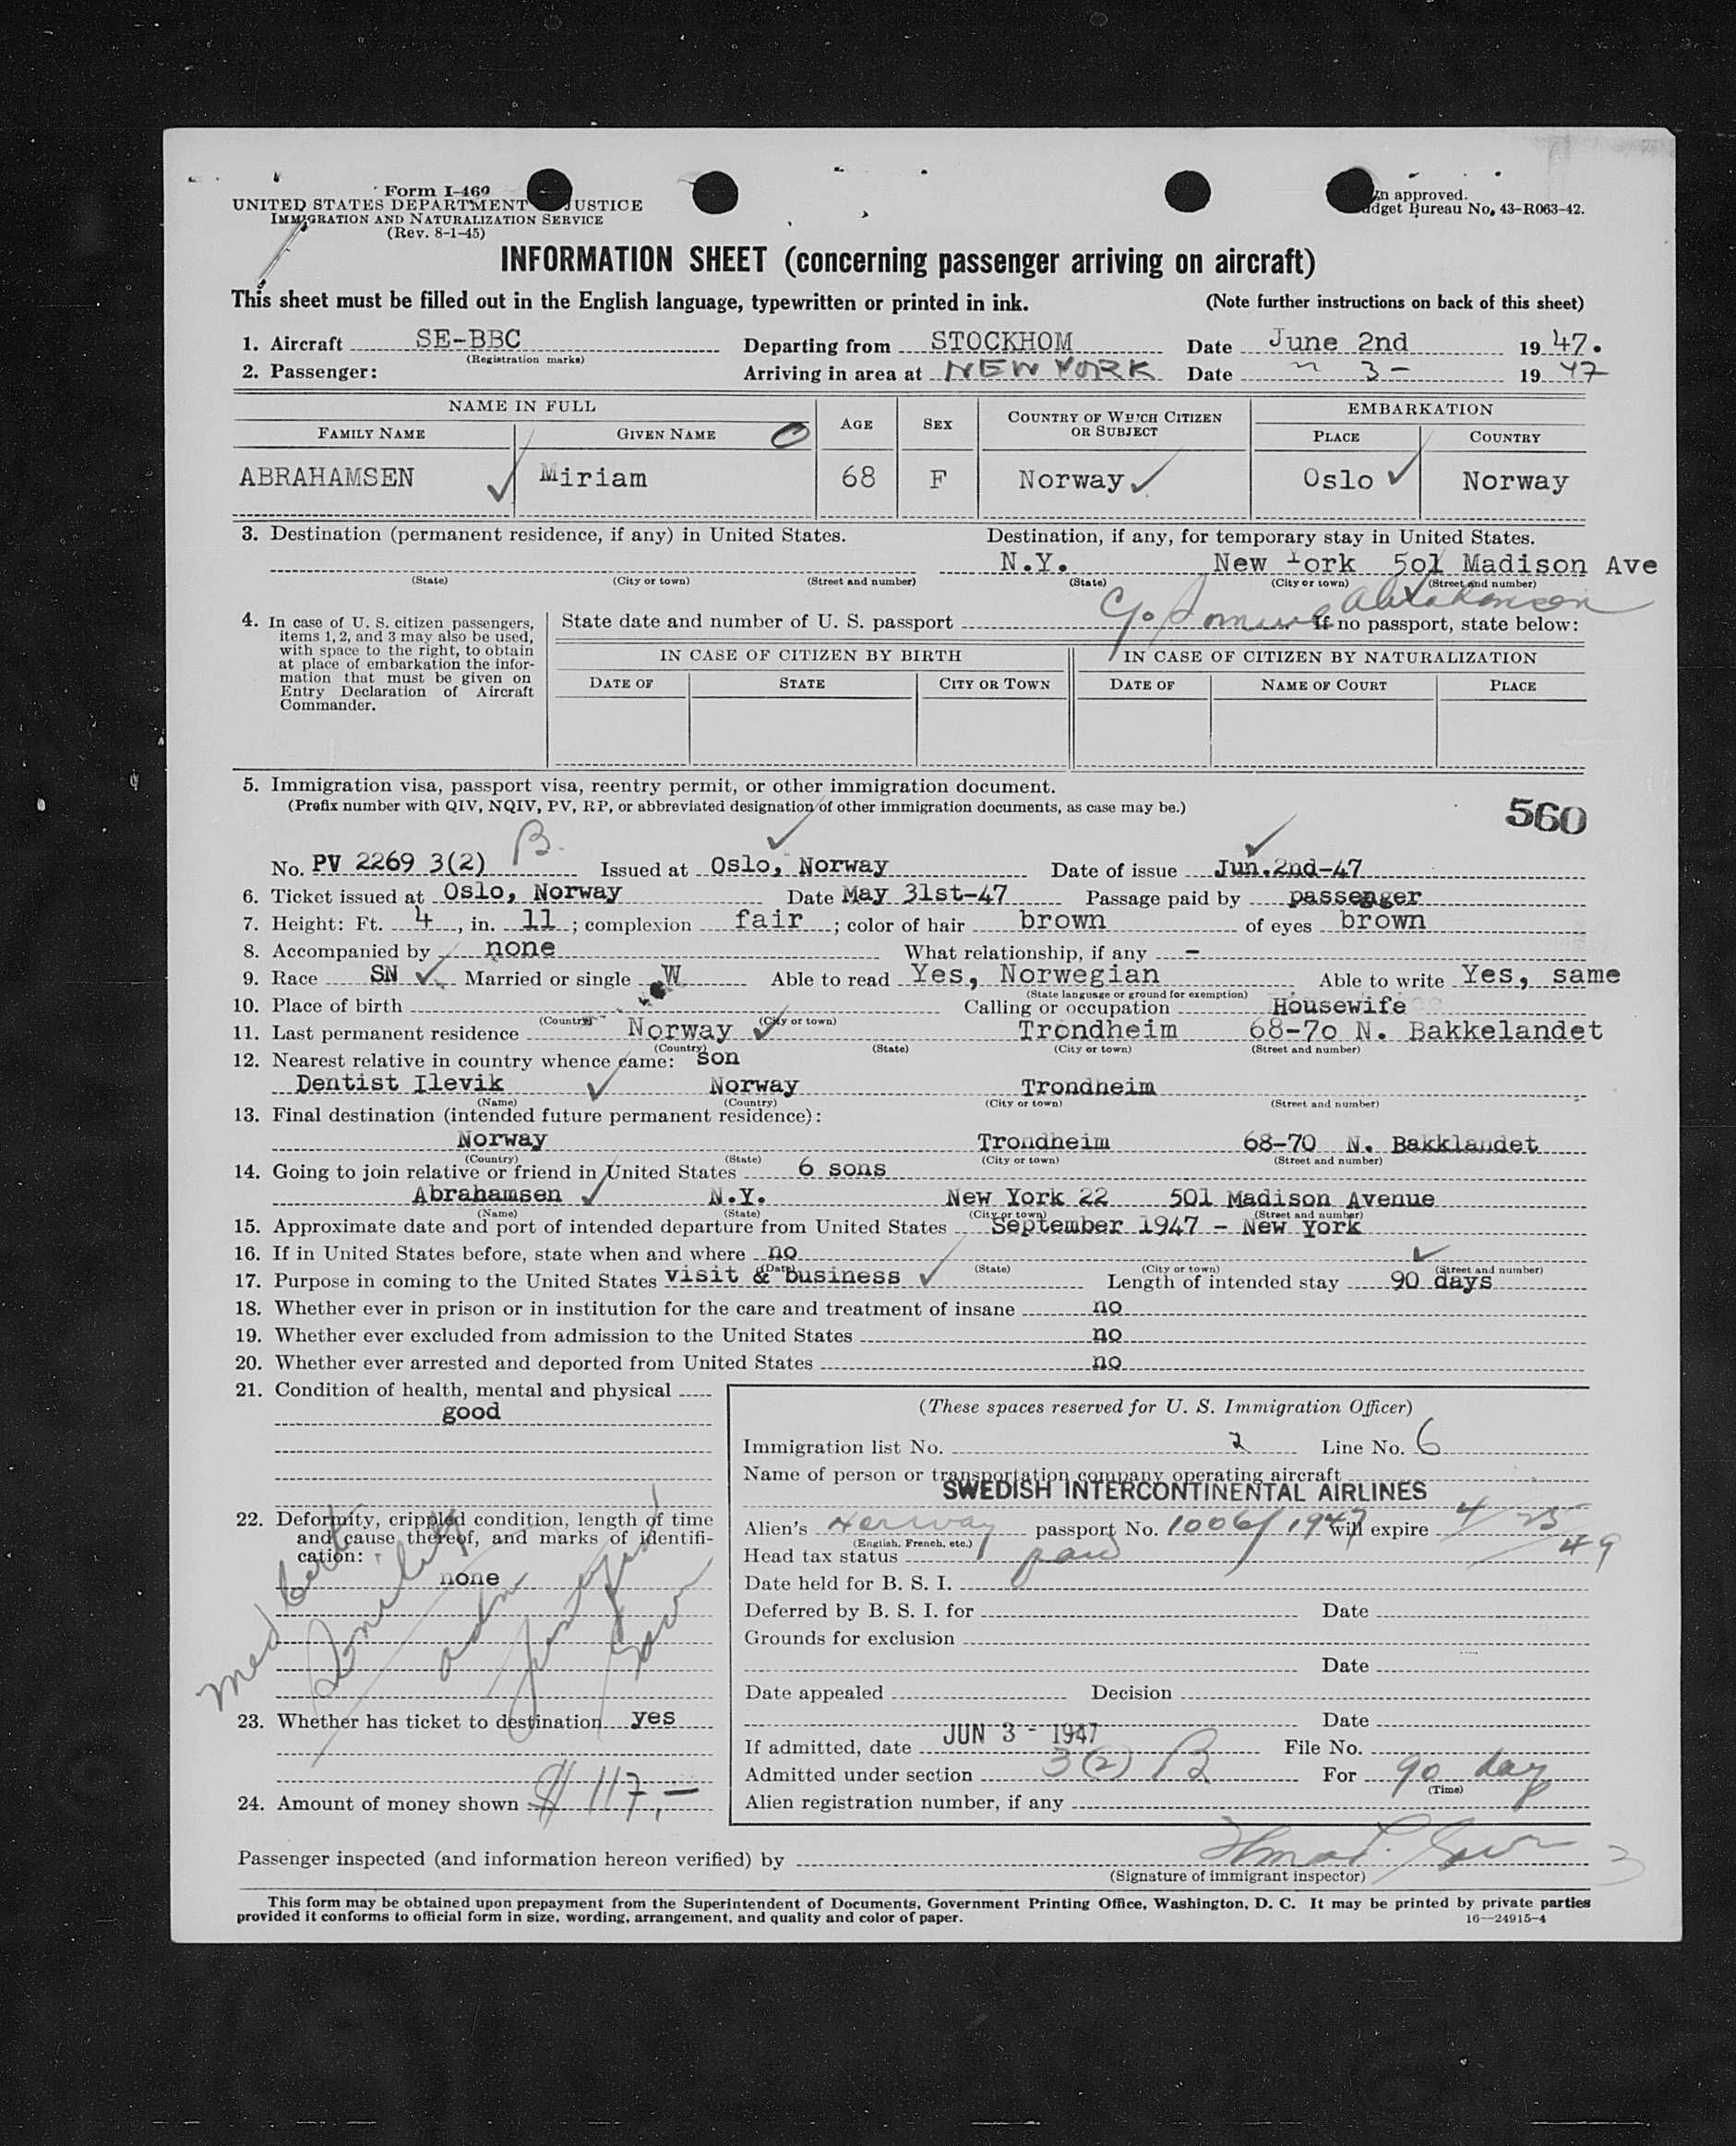 Form I-460
UNITED STATES DEPARTMENT JUSTICE
IMMIGRATION AND NATURALIZATION SERVICE
(Rev. 8-1-45)
n approved.
dget Bureau No. 43-R063-42.
INFORMATION SHEET (concerning passenger arriving on aircraft)
This sheet must be filled out in the English language, typewritten or printed in ink. (Note further instructions on back of this sheet)
1. Aircraft SE-BBC Departing from STOCKHOM Date June 2nd 1947.
(Registration marks)
2. Passenger: Arriving in area at NEW YORK Date " 3- 1947
NAME IN FULL AGE SEX COUNTRY OF WHICH CITIZEN OR SUBJECT EMBARKATION
FAMILY NAME GIVEN NAME PLACE COUNTRY
ABRAHAMSEN Miriam 68 F Norway Oslo Norway
3. Destination (permanent residence, if any) in United States. Destination, if any, for temporary stay in United States.
N.Y. New York 501 Madison Ave
(State) (City or town) (Street and number) (State) (City or town) (Street and number)
c/o Abrahamsen
4. In case of U. S. citizen passengers, items 1, 2, and 3 may also be used, with space to the right, to obtain at place of embarkation the information that must be given on Entry Declaration of Aircraft Commander.
State date and number of U. S. passport If no passport, state below:
IN CASE OF CITIZEN BY BIRTH IN CASE OF CITIZEN BY NATURALIZATION
DATE OF STATE CITY OR TOWN DATE OF NAME OF COURT PLACE
5. Immigration visa, passport visa, reentry permit, or other immigration document.
(Prefix number with QIV, NQIV, PV, RP, or abbreviated designation of other immigration documents, as case may be.)
560
B.
No. PV 2269 3(2) Issued at Oslo, Norway Date of issue Jun.2nd-47
6. Ticket issued at Oslo, Norway Date May 31st-47 Passage paid by passenger
7. Height: Ft. 4, in. 11; complexion fair; color of hair brown of eyes brown
8. Accompanied by none What relationship, if any -
9. Race SN Married or single W Able to read Yes, Norwegian Able to write Yes, same
(State language or ground for exemption)
10. Place of birth Calling or occupation Housewife
(Country) (City or town)
11. Last permanent residence Norway Trondheim 68-70 N. Bakkelandet
(Country) (State) (City or town) (Street and number)
12. Nearest relative in country whence came: son
Dentist Ilevik Norway Trondheim
(Name) (Country) (City or town) (Street and number)
13. Final destination (intended future permanent residence):
Norway Trondheim 68-70 N. Bakklandet
(Country) (State) (City or town) (Street and number)
14. Going to join relative or friend in United States 6 sons
Abrahamsen N.Y. New York 22 501 Madison Avenue
(Name) (State) (City or town) (Street and number)
15. Approximate date and port of intended departure from United States September 1947 - New York
16. If in United States before, state when and where no
(Date) (State) (City or town) (Street and number)
17. Purpose in coming to the United States visit & business Length of intended stay 90 days
18. Whether ever in prison or in institution for the care and treatment of insane no
19. Whether ever excluded from admission to the United States no
20. Whether ever arrested and deported from United States no
21. Condition of health, mental and physical
good
22. Deformity, crippled condition, length of time and cause thereof, and marks of identification:
none
Med Cert
23. Whether has ticket to destination yes
24. Amount of money shown $ 117,-
(These spaces reserved for U. S. Immigration Officer)
Immigration list No. 2 Line No. 6
Name of person or transportation company operating aircraft
SWEDISH INTERCONTINENTAL AIRLINES
Alien's Norway passport No. 1006/1947 will expire 4/25/49
(English, French, etc.)
Head tax status paid
Date held for B. S. I.
Deferred by B. S. I. for Date
Grounds for exclusion
Date
Date appealed Decision
Date
If admitted, date JUN 3 - 1947 File No.
Admitted under section 3(2) B For 90 day
(Time)
Alien registration number, if any
Passenger inspected (and information hereon verified) by
(Signature of immigrant inspector)
This form may be obtained upon prepayment from the Superintendent of Documents, Government Printing Office, Washington, D. C. It may be printed by private parties
provided it conforms to official form in size, wording, arrangement, and quality and color of paper. 16—24915-4